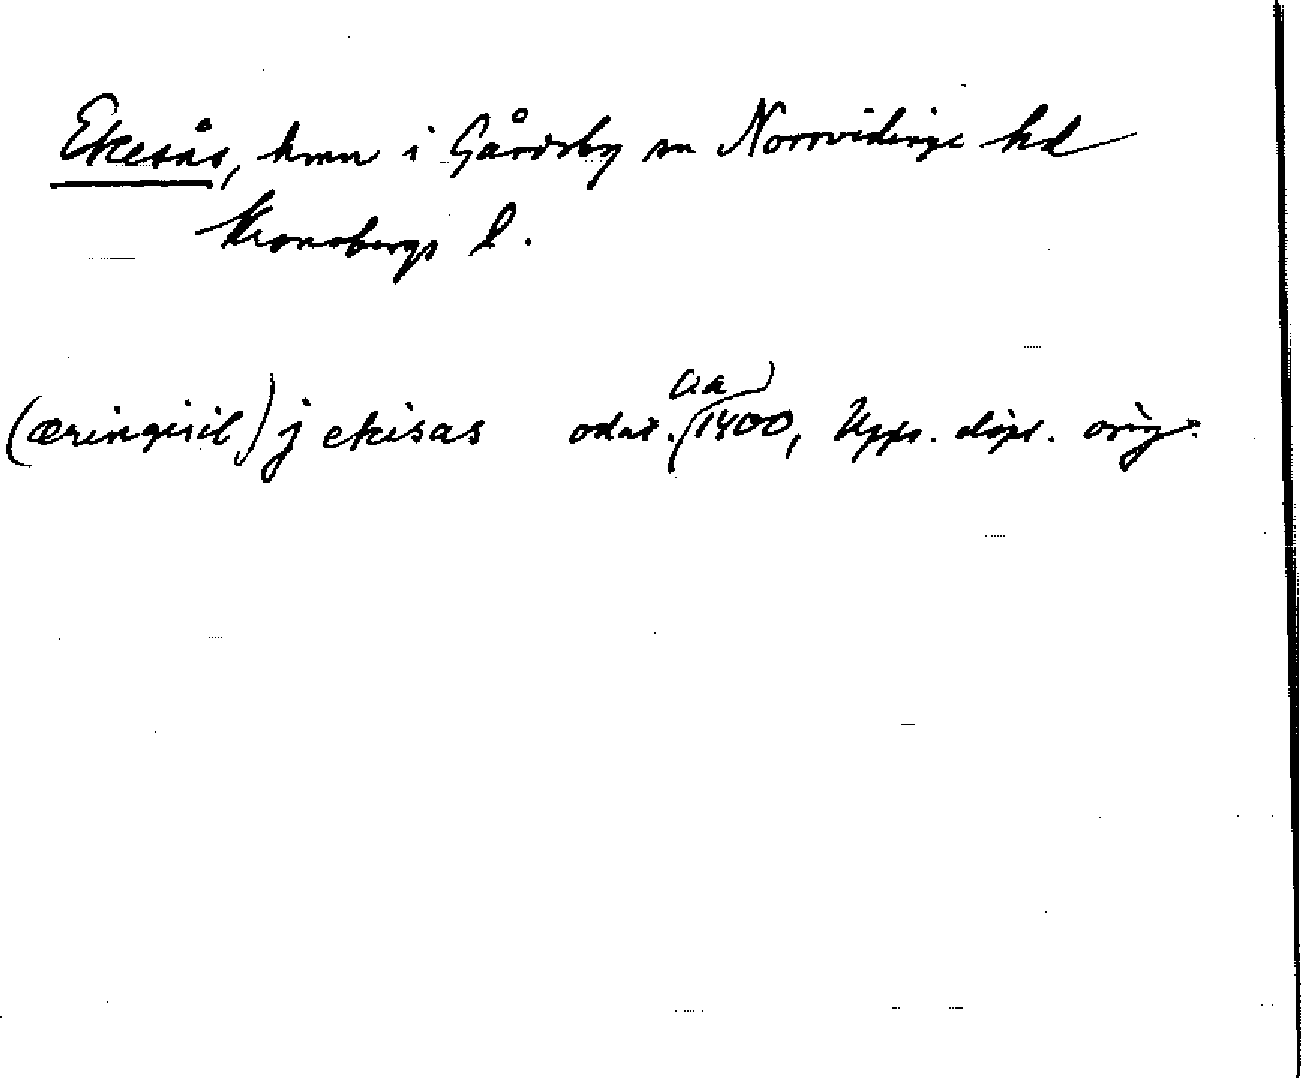 Ekesås, hmn i Gårdsby sn Norrvidinge hd
Kronobergs l.
(æringisil) j ekisas odat. (ca 1400), Upps. dipl. orig.